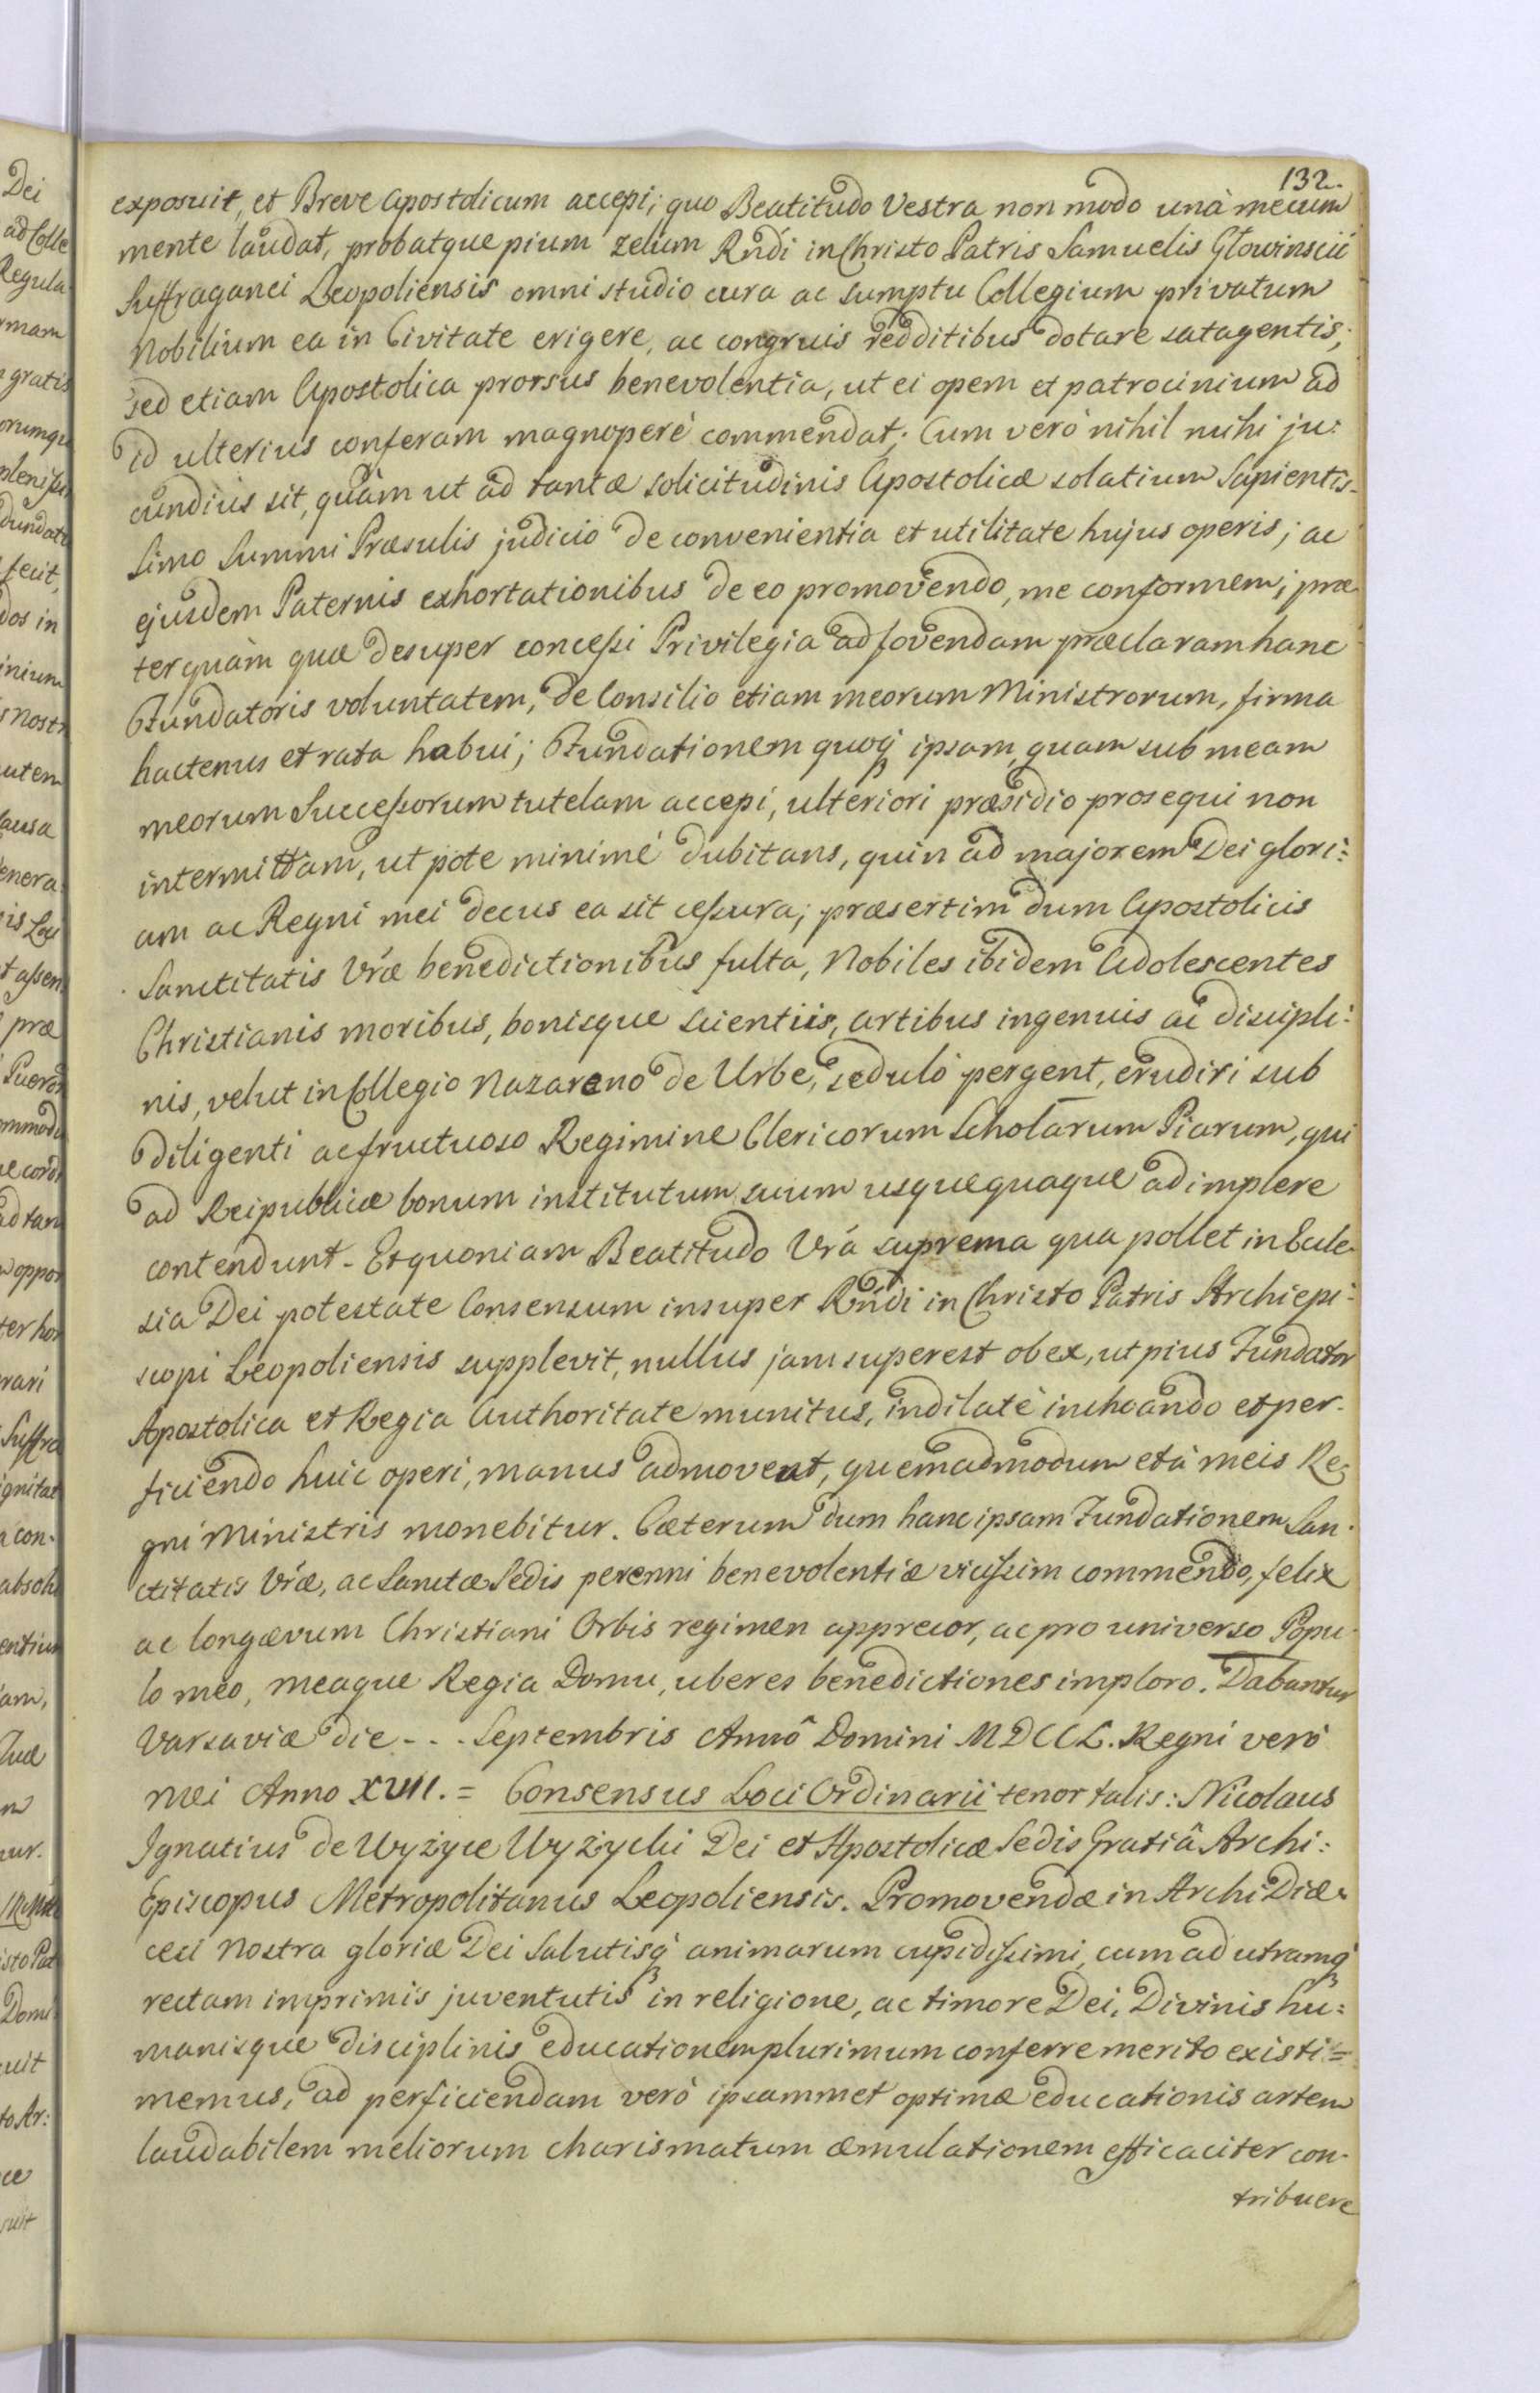 132.
exposuit, et Breve Apostolicum accepi; quo Beatitudo Vestra non modo unà mecum
mente laudat, probatque pium zelum Rńdi in Christo Patris Samuelis Głowinscii
Suffraganei Leopoliensis omni studio cura ac sumptu Collegium privatum
Nobilium ea in Civitate erigere, ac congruis redditibus dotare satagentis;
sed etiam Apostolica prorsus benevolentia, ut ei opem et patrocinium ad
id ulterius conferam magnoperè commendat; Cum verò nihil mihi ju:
cundius sit, quàm ut ad tantæ solicitudinis Apostolicæ solatium Sapientis-
simo Summi Præsulis judicio de convenientia et utilitate hujus operis; ac
ejusdem Paternis exhortationibus de eo promovendo, me conformem; præ
terquàm quæ desuper conceßi Privilegia ad fovendam præclaram hanc
Fundatoris voluntatem, de Consilio etiam meorum Ministrorum, firma
hactenus et rata habui; Fundationem quoq; ipsam, quam sub meam
meorum Succeßorum tutelam accepi, ulteriori præsidio prosequi non
intermittam, ut pote minimè dubitans, quin ad majorem Dei glori:
am ac Regni mei decus ea sit ceßura; præsertim dum Apostolicis
Sanctitatis Vŕæ benedictionibus fulta, Nobiles ibidem Adolescentes
Christianis moribus, bonisque scientiis, artibus ingenuis ac discipli:
nis, velut in Collegio Nazareno de Urbe, sedulò pergent, erudiri sub
diligenti ac fructuoso Regimine Clericorum Scholarum Piarum, qui
ad Reipublicæ bonum institutum suum usquequaque adimplere
contendunt. Et quoniam Beatitudo Vŕa suprema qua pollet in Eccle-
sia Dei potestate Consensum insuper Rńdi in Christo Patris Archiepi:
scopi Leopoliensis supplevit, nullus jam superest obex, ut pius Fundator
Apostolica et Regia Authoritate munitus, indilatè inchoando et per-
ficiendo huic operi, manus admoveat, quemadmodum et à meis Re-
gni Ministris monebitur. Cæterum dum hanc ipsam Fundationem San-
ctitatis Vŕæ, ac Sanctæ Sedis perenni benevolentiæ vicißim commendo, felix
ac longævum Christiani Orbis regimen apprecor, ac pro universo Popu-
lo meo, meaque Regia Domu, uberes benedictiones imploro. Dabantur
Varsaviæ die - - - Septembris Annô Domini MDCCL. Regni verò
mei Anno XVII. = Consensus Loci Ordinarii tenor talis: Nicolaus
Ignatius de Wyżyce Wyżycki Dei et Apostolicæ Sedis Gratiâ Archi:
Episcopus Metropolitanus Leopoliensis. Promovendæ in ArchiDiæ-
cesi Nostra gloriæ Dei Salutisq; animarum cupidißimi, cum ad utramq;
rectam imprimis juventutis in religione, ac timore Dei, Divinis hu:
manisque disciplinis educationem plurimum conferre merito existi=
memus, ad perficiendam verò ipsammet optimæ educationis artem
laudabilem meliorum charismatum æmulationem efficaciter con-
tribuere